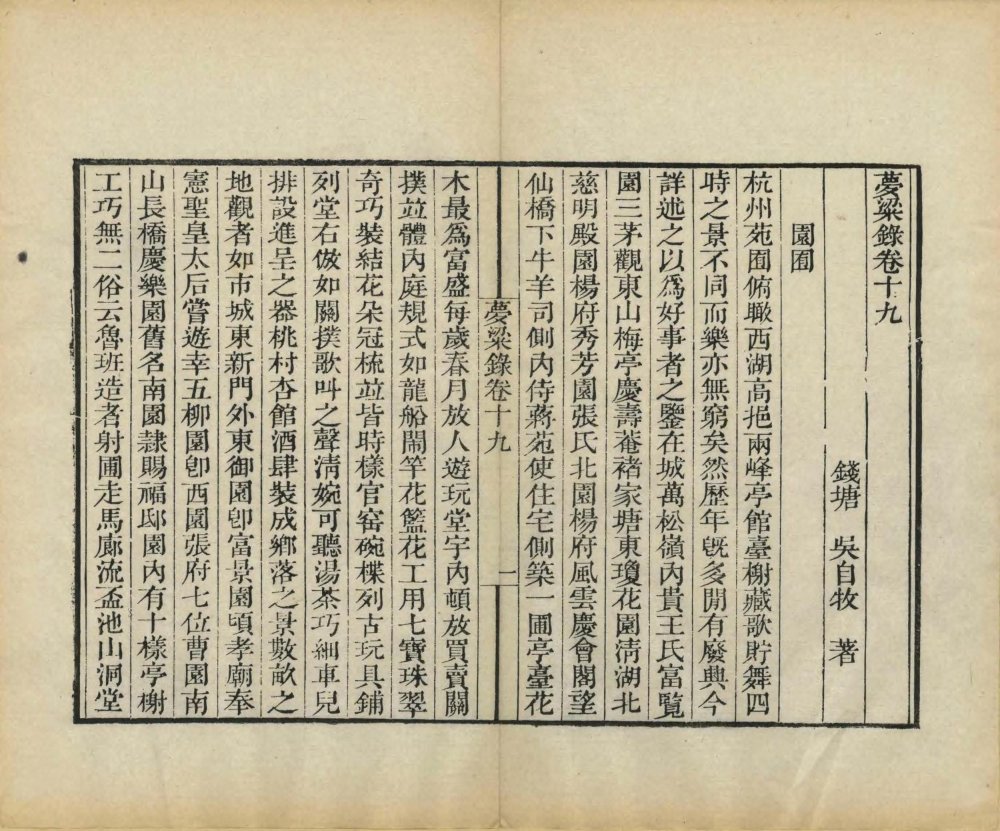 夢粱錄卷十九
錢塘 吳自牧 著
園囿
杭州苑囿俯瞰西湖高挹兩峰亭館臺榭藏歌貯舞四
時之景不同而樂亦無窮矣然歷年旣多閒有廢興今
詳述之以爲好事者之鑒在城萬松嶺內貴王氏富覽
園三茅觀東山梅亭慶壽菴褚家塘東瓊花園淸湖北
慈明殿園楊府秀芳園張氏北園楊府風雲慶會閣望
仙橋下牛羊司側內侍蔣苑使住宅側築一圃亭臺花
夢粱錄卷十九 一
木最爲富盛每歲春月放人遊玩堂宇內頓放買賣關
撲並體內庭規式如龍船鬧竿花籃花工用七寶珠翠
奇巧裝結花朵冠梳並皆時樣官窰碗楪列古玩具鋪
列堂右倣如關撲歌叫之聲淸婉可聽湯茶巧細車兒
排設進呈之器桃村杏館酒肆裝成鄉落之景數畝之
地觀者如市城東新門外東御園卽富景園頃孝廟奉
憲聖皇太后嘗遊幸五柳園卽西園張府七位曹園南
山長橋慶樂園舊名南園隸賜福邸園內有十樣亭榭
工巧無二俗云魯班造者射圃走馬廊流盃池山洞堂